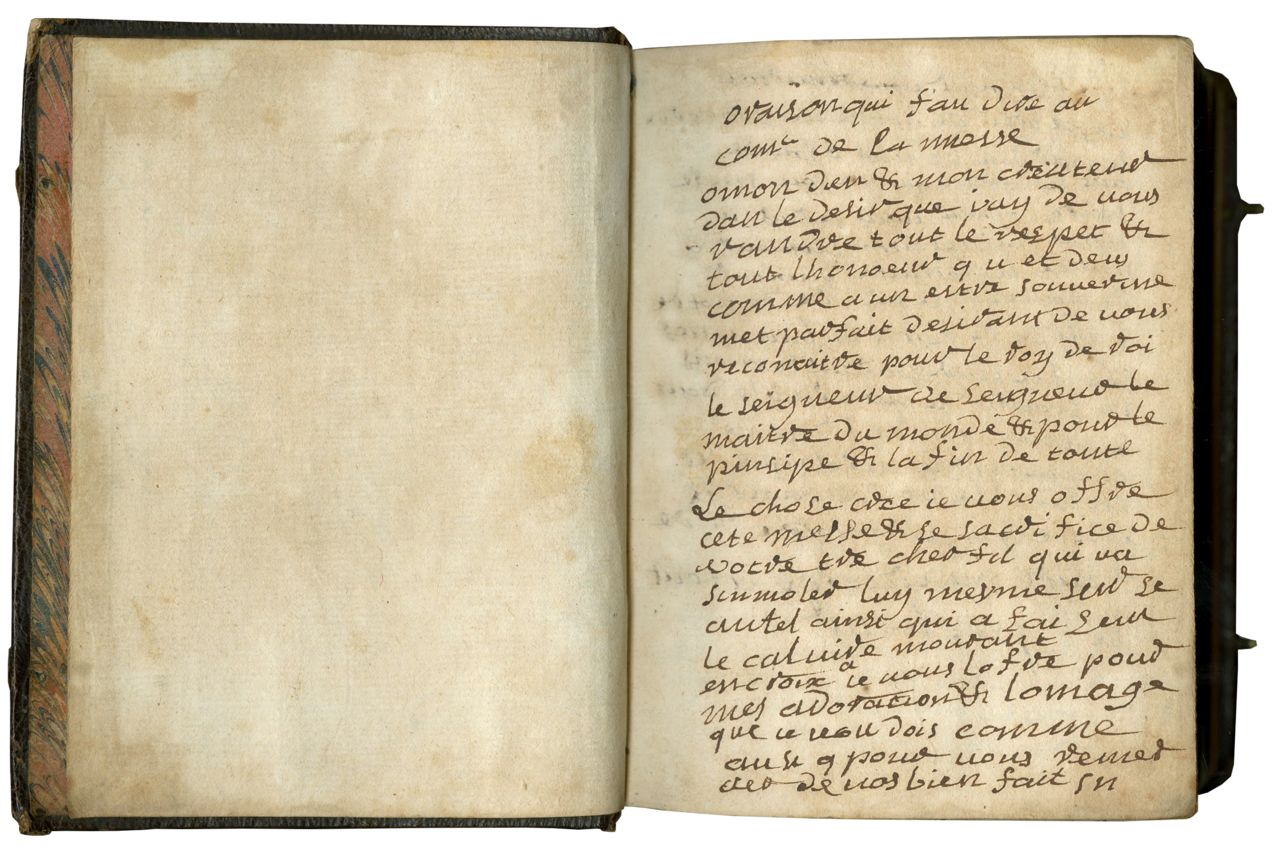 oraison qui fau dire au
com.^e de la messe
o mon dieu & mon creuteur
dan le desir que iay de vous
randre tout le respet &
tout lhonoeur qu et deus
comme a un estre souverene
met parfait desirant de vous
reconaitre pour le roy de roi
le seigneur de seigneur le
maitre du monde & pour le
pinsipe & la fin de toute
le chose cree ie vous offre
cete messe & se sacrifice de
votre tre cher fil qui va
sinmoler luy mesme seur se
autel ainsi qui a fai seur
le calvire mourant
en croix ie vous lofre pour
mes adoration & lomage
que ie vou dois comme
ausi q pour vous remer
cier de vos bien fait